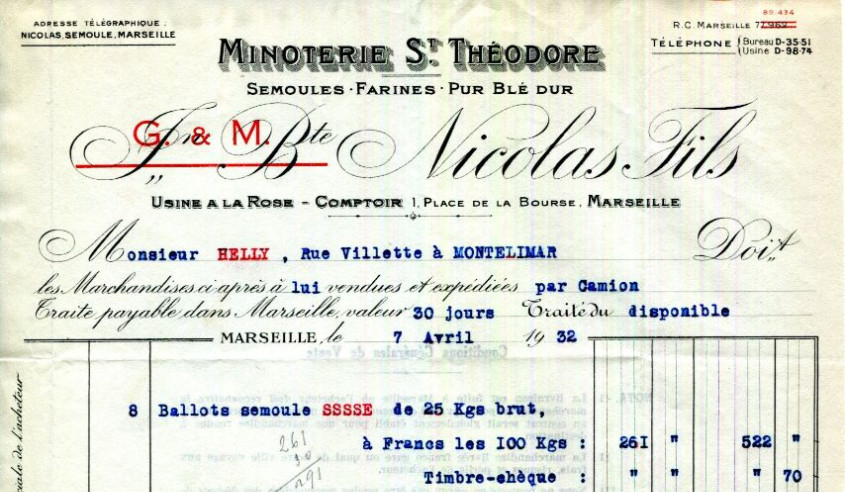 ADRESSE TÉLÉGRAPHIQUE:
NICOLAS, SEMOULE, MARSEILLE
89.434
R.C. MARSEILLE 77.962
TÉLÉPHONE { Bureau D-35-51
Usine D-98-74
MINOTERIE ST. THÉODORE
SEMOULES · FARINES · PUR BLÉ DUR
G. & M.
Jn Bte Nicolas Fils
USINE A LA ROSE - COMPTOIR 1, PLACE DE LA BOURSE, MARSEILLE
Monsieur HELLY , Rue Villette à MONTELIMAR Doit
les Marchandises ci après à lui vendues et expédiées par Camion
Traite payable dans Marseille, valeur 30 jours Traité du disponible
MARSEILLE, le 7 Avril 1932
8 Ballots semoule SSSSE de 25 Kgs brut,
à Francs les 100 Kgs : 261 " 522 "
Timbre-chèque : " " " 70
261
30
291
ciale de l'acheteur
Conditions Générales de Vente